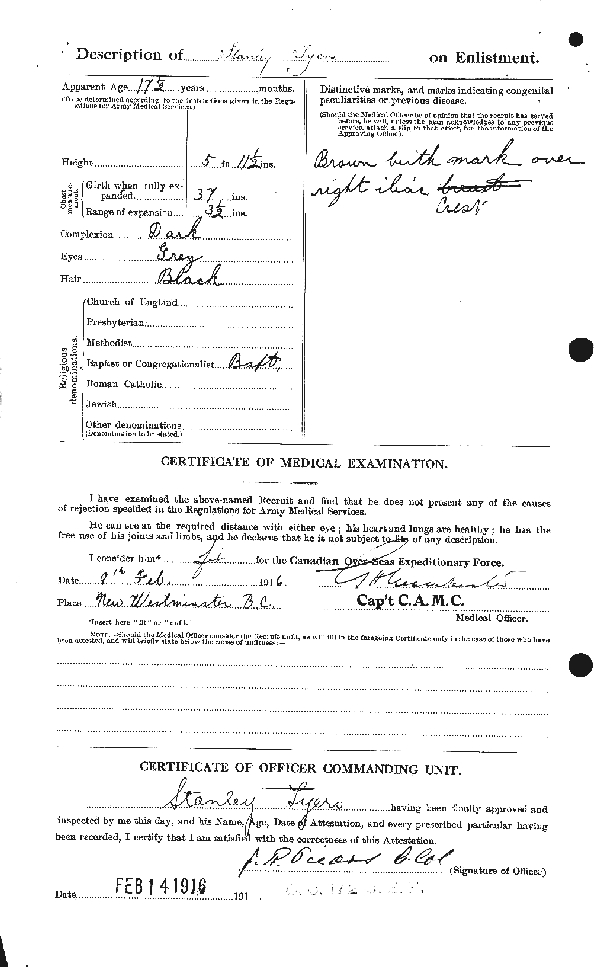 Description of Stanley Tyers on Enlistment.
Apparent Age 17½ years months.
(To be determined according to the instructions given in the Regulations for Army Medical Services.)
Distinctive marks, and marks indicating congenital
peculiarities or previous disease.
(Should the Medical Officer be of opinion that the recruit has served
before, he will, unless the man acknowledges to any previous
service, attach a slip to that effect, for the information of the
Approving Officer).
Height 5 ft. 11½ ins.
Chest measurement
Girth when fully expanded 37 ins.
Range of expansion 3½ ins.
Complexion Dark
Eyes Grey
Hair Black
Brown birth mark over
right iliac breast
Crest
Religious denominations.
Church of England
Presbyterian
Methodist
Baptist or Congregationalist Bapt.
Roman Catholic
Jewish
Other denominations
(Denomination to be stated.)
CERTIFICATE OF MEDICAL EXAMINATION.
I have examined the above-named Recruit and find that he does not present any of the causes
of rejection specified in the Regulations for Army Medical Services.
He can see at the required distance with either eye; his heart and lungs are healthy; he has the
free use of his joints and limbs, and he declares that he is not subject to fits of any description.
I consider him* fit for the Canadian Over-Seas Expeditionary Force.
Date Feb 1916
Place New Westminster B.C.
Cap't C.A.M.C.
Medical Officer.
*Insert here "fit" or "unfit."
NOTE.—Should the Medical Officer consider the Recruit unfit, he will fill in the foregoing Certificate only in the case of those who have
been attested, and will briefly state below the cause of unfitness:—
CERTIFICATE OF OFFICER COMMANDING UNIT.
Stanley Tyers having been finally approved and
inspected by me this day, and his Name, Age, Date of Attestation, and every prescribed particular having
been recorded, I certify that I am satisfied with the correctness of this Attestation.
(Signature of Officer)
Date FEB 14 1916 191